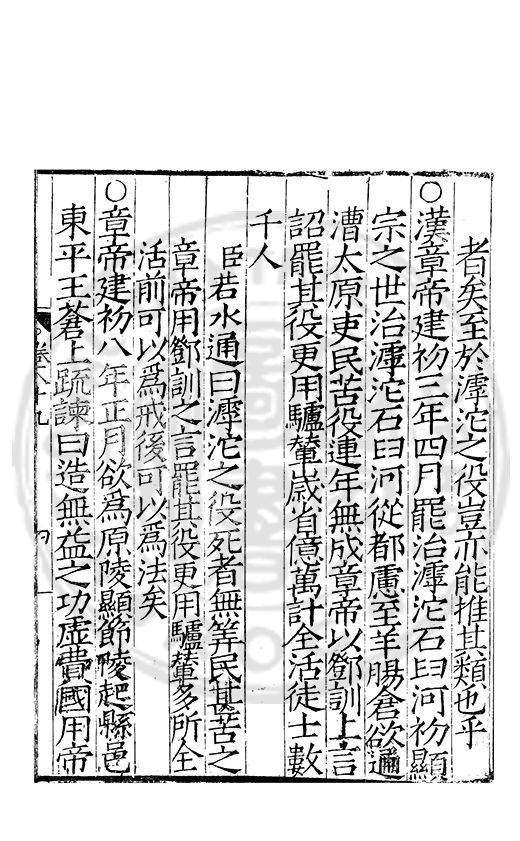 者矣至於滹沱之役豈亦能推其類也乎
○漢章帝建初三年四月罷治滹沱石臼河初顯
宗之世治滹沱石臼河從都慮至羊腸倉欲通
漕太原吏民苦役連年無成章帝以鄧訓上言
詔罷其役更用驢輦歲省億萬計全活徒士數
千人
臣若水通曰滹沱之役死者無筭民甚苦之
章帝用鄧訓之言罷其役更用驢輦多所全
活前可以為戒後可以為法矣
○章帝建初八年正月欲為原陵顯節陵起縣邑
東平王蒼上疏諫曰造無益之功虛費國用帝
卷八十九